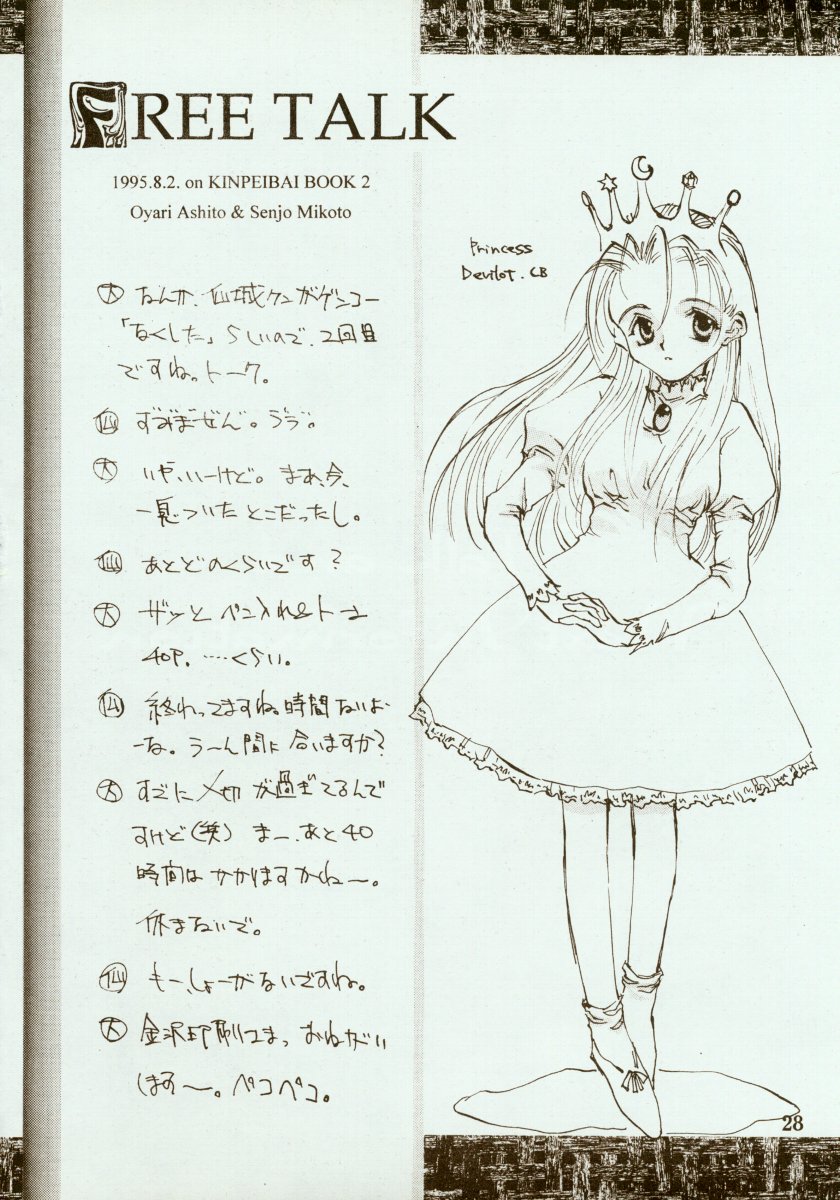 FREE TALK
1995.8.2. on KINPEIBAI BOOK 2
Oyari Ashito & Senjo Mikoto
Princess
Devilot. CB
大 なんか、仙城クンがゲンコー
「なくした」らしいので、2回目
ですね。トーク。
仙 ずびばぜん。
大 いや、いーけど。まあ、今、
一息ついたとこだったし。
仙 あとどのくらいです?
大 ザッと ペン入れ&トーン
40P. ……くらい。
仙 終わってますね。時間ないよ
ーな。うーん間に合いますか?
大 すでに〆切が過ぎてるんで
すけど(笑) まー、あと40
時間はかかりますかね〜。
休まないで。
仙 もー、しょーがないですね。
大 金沢印刷さま、おねがい
します〜。ペコペコ。
28